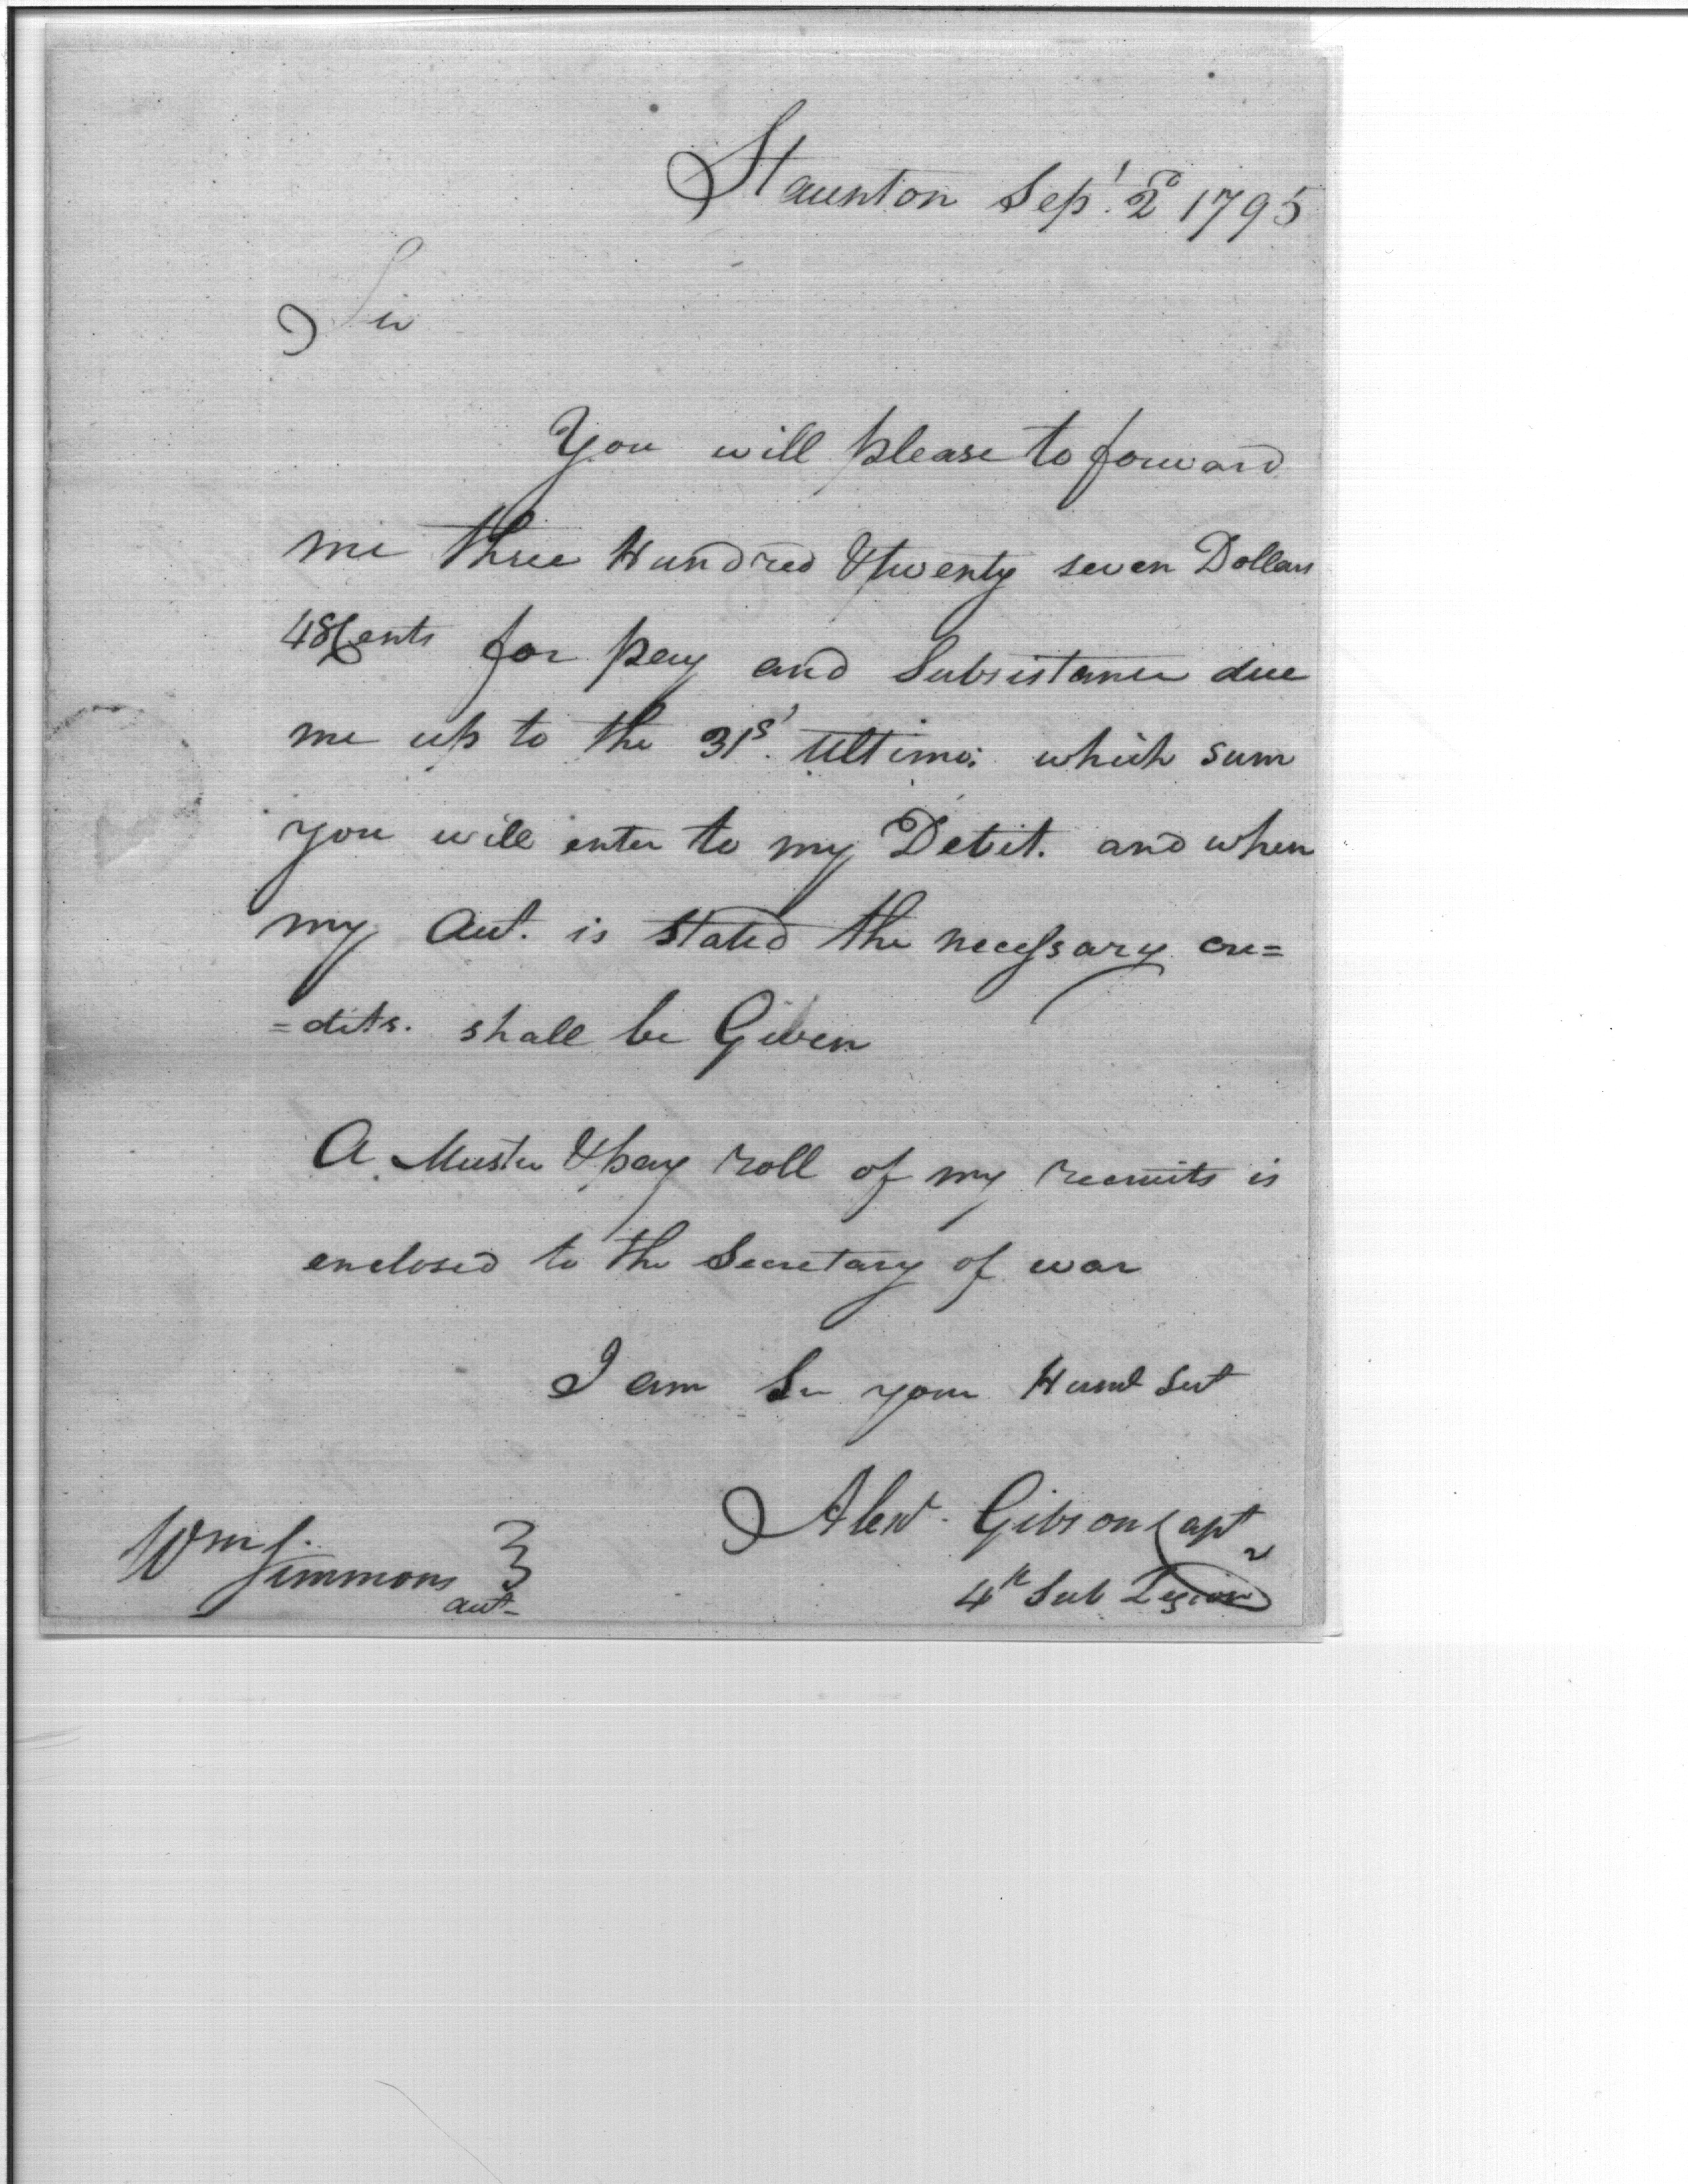 Staunton Sept. 2d 1795
Sir
You will please to forward
me three Hundred & twenty seven Dollars
48 Cents for pay and Subsistance due
me up to the 31st. Ultimo: which sum
you will enter to my Debit. and when
my Acct. is stated the necessary cre=
=dits. shall be Given
A Muster & pay roll of my recruits is
enclosed to the Secretary of war
I am Sir your Huml Sert
Alexr. Gibson Capt
4th Sub Legion
Wm Simmons
Acct-